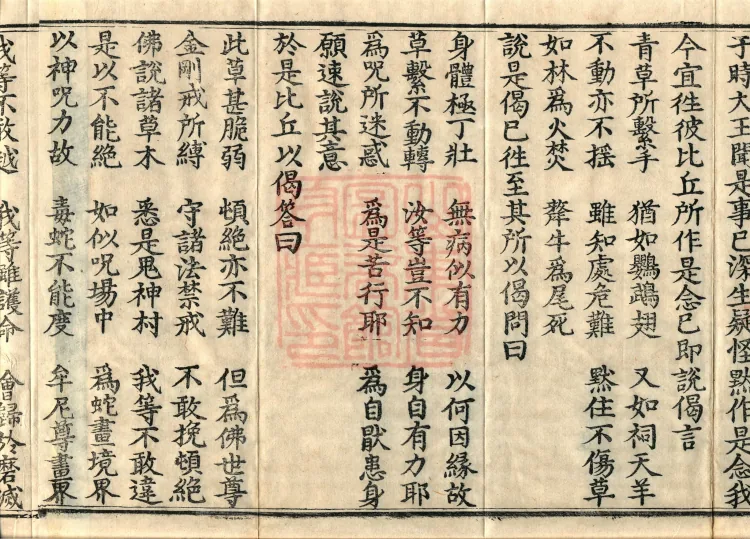 于時大王聞是事已深生疑怪黙作是念我
今宜徃彼比丘所作是念已即說偈言
青草所繫手　猶如鸚鵡翅　又如祠天羊
不動亦不揺　雖知處危難　黙住不傷草
如林爲火焚　犛牛爲尾死
說是偈已徃至其所以偈問曰
身體極丁壯　無病似有力　以何因緣故
草繫不動轉　汝等豈不知　身自有力耶
爲咒所迷惑　爲是苦行耶　爲自厭患身
願速說其意
於是比丘以偈答曰
此草甚脆弱　頓絶亦不難　但爲佛世尊
金剛戒所縛　守諸法禁戒　不敢挽頓絶
佛說諸草木　悉是鬼神村　我等不敢違
是以不能絶　如似咒場中　爲蛇畫境界
以神咒力故　毒蛇不能度　牟尼尊畫界
我等不敢越　我等雖護命　會歸於磨滅